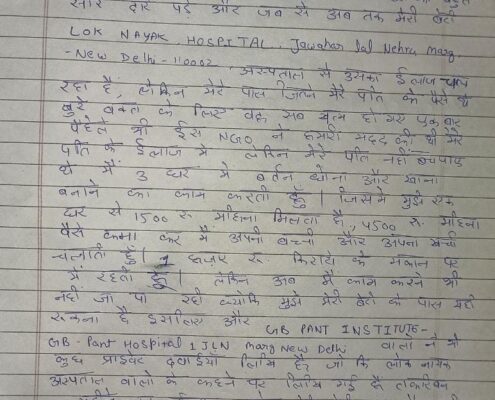 और जब से अब तक मेरी बेटी
LOK NAYAK HOSPITAL, Jawahar lal Nehru Marg
-New Delhi-110002, अस्पताल से उसका ईलाज चल
रहा है, लेकिन मेरे पास जितने मेरे पति के पैसे थे
बुरे वक्त के लिए वह सब खत्म हो गए एक बार
पहले भी इस NGO ने हमारी मदद की थी मेरे
पति के ईलाज में लेकिन मेरे पति नहीं बच पाए
थे मैं 3 घर में बर्तन धोना और खाना
बनाने का काम करती हूँ। जिसमें मुझे एक
घर से 1500 रु. महिना मिलता है, 4500 रु. महिना
पैसे कमा कर मैं अपनी बच्ची और अपना खर्चा
चलाती हूँ। 1 हजार रु. किराये के मकान पर
में रहती हूँ। लेकिन अब मैं काम करने भी
नहीं जा पा रही क्योंकि मुझे मेरी बेटी के पास यहीं
रुकना है इसलिए और GB PANT INSTITUTE-
GB-Pant Hospital 1 JLN marg New Delhi वालों ने भी
कुछ प्राइवेट दवाईयाँ लिखि है, जो कि लोक नायक
अस्पताल वालों के कहने पर लिखि गई है